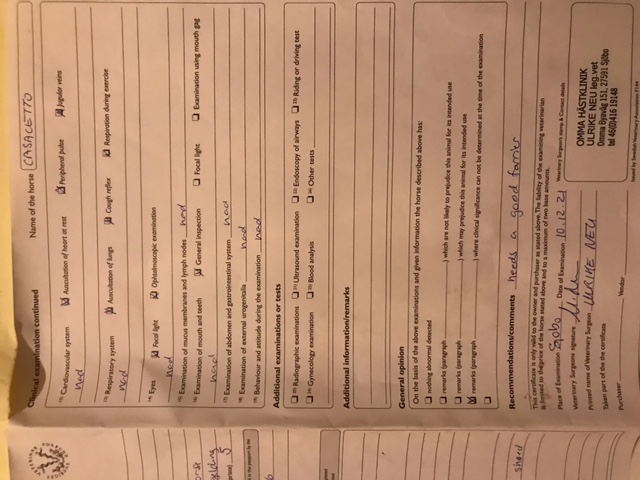 Name of the horse CASACETTO
Clinical examination continued
Cardiovascular system Auscultation of heart at rest Peripheral pulse Jugular veins
nad
Respiratory system Auscultation of lungs Cough reflex Respiration during exercise
nad
Eyes Focal light Ophthalmoscopic examination
nad
Examination of mucus membranes and lymph nodes nad
Examination of mouth and teeth General inspection Focal light Examination using mouth gag
nad
Examination of abdomen and gastrointestinal system nad
Examination of external urogenitalia nad
Behaviour and attitude during the examination nad
Additional examinations or tests
Radiographic examinations Ultrasound examination Endoscopy of airways Riding or driving test
Gynecology examination Blood analysis Other tests
Additional information/remarks
General opinion
On the basis of the above examinations and given information the horse described above has:
nothing abnormal detected
remarks (paragraph ) which are not likely to prejudice this animal for its intended use
remarks (paragraph ) which may prejudice this animal for its intended use
remarks (paragraph ) where clinical significance can not be determined at the time of the examination
Recommendations/comments needs a good farrier
This certificate is only valid to the owner and purchaser as stated above. The liability of the examining veterinarian
is limited to the price of the horse stated above and to a maximum of two base amounts.
Place of Examination Sjöbo Date of Examination 10.12.21 Veterinary Surgeon's name & Contact details
Veterinary Surgeons signature
Printed name of Veterinary Surgeon ULRIKE NEU
Taken part of the certificate
Purchaser Vendor
OMMA HÄSTKLINIK
ULRIKE NEU leg.vet
Omma Byaväg 151, 27591 Sjöbo
tel 46(0)416 19148
shard